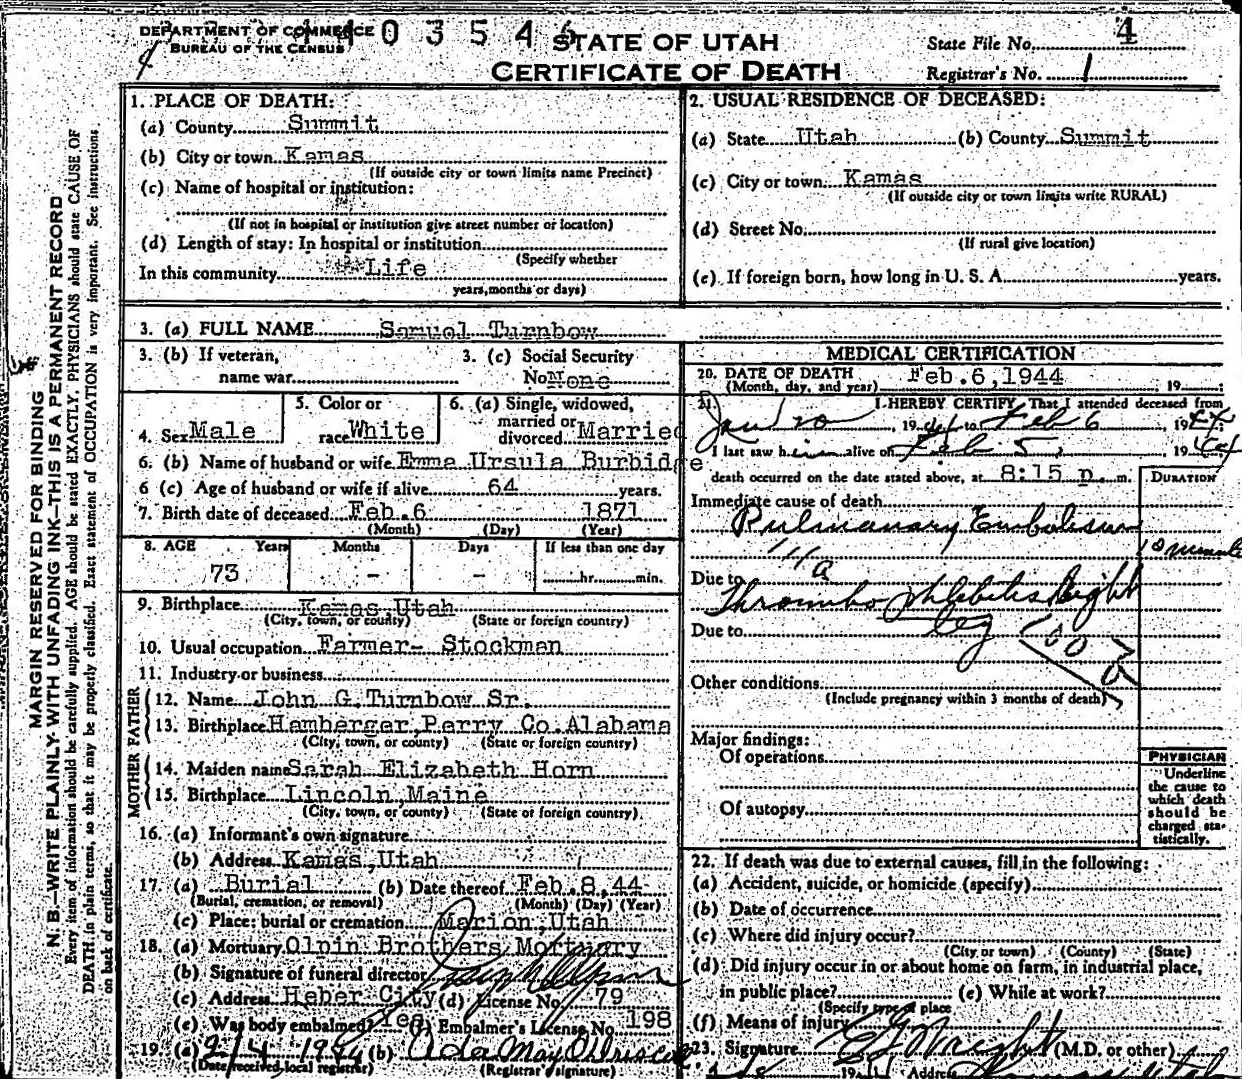 DEPARTMENT OF COMMERCE
BUREAU OF THE CENSUS
4
STATE OF UTAH
CERTIFICATE OF DEATH
State File No. 4
Registrar's No. 1
1. PLACE OF DEATH:
(a) County Summit
(b) City or town Kamas
(If outside city or town limits name Precinct)
(c) Name of hospital or institution:
(If not in hospital or institution give street number or location)
(d) Length of stay: In hospital or institution
(Specify whether
In this community Life
years, months or days)
2. USUAL RESIDENCE OF DECEASED:
(a) State Utah (b) County Summit
(c) City or town Kamas
(If outside city or town limits write RURAL)
(d) Street No.
(If rural give location)
(e) If foreign born, how long in U. S. A. years.
3. (a) FULL NAME Samuel Turnbow
3. (b) If veteran, name war
3. (c) Social Security No. None
4. Sex Male
5. Color or race White
6. (a) Single, widowed, married or divorced Married
6. (b) Name of husband or wife Emma Ursula Burbidge
6 (c) Age of husband or wife if alive 64 years.
7. Birth date of deceased Feb. 6 1871
(Month) (Day) (Year)
8. AGE Years Months Days If less than one day
73 - - hr. min.
9. Birthplace Kamas, Utah
(City, town, or county) (State or foreign country)
10. Usual occupation Farmer- Stockman
11. Industry or business
FATHER
12. Name John G. Turnbow Sr.
13. Birthplace Hamberger, Perry Co. Alabama
(City, town, or county) (State or foreign country)
MOTHER
14. Maiden name Sarah Elizabeth Horn
15. Birthplace Lincoln, Maine
(City, town, or county) (State or foreign country)
16. (a) Informant's own signature
(b) Address Kamas, Utah
17. (a) Burial (b) Date thereof Feb. 8, 44
(Burial, cremation, or removal) (Month) (Day) (Year)
(c) Place; burial or cremation Marion, Utah
18. (a) Mortuary Olpin Brothers Mortuary
(b) Signature of funeral director
(c) Address Heber City (d) License No. 79
(e) Was body embalmed? Yes (f) Embalmer's License No. 198
19. (a) 2/4 1944 (b) Ada May O'Driscoll
(Date received local registrar) (Registrar's signature)
MEDICAL CERTIFICATION
20. DATE OF DEATH
(Month, day, and year) Feb. 6, 1944, 19
21. I HEREBY CERTIFY, That I attended deceased from
Jan 20, 1944 to Feb 6, 1944
I last saw him alive on Feb 5, 1944
death occurred on the date stated above, at 8:15 p. m.
DURATION
Immediate cause of death
Pulmanary Embolism
10 minute
111a
Due to
Thrombo phlebitis Right
leg
Due to
100
Other conditions
(Include pregnancy within 3 months of death)
Major findings:
Of operations
Of autopsy
PHYSICIAN
Underline
the cause to
which death
should be
charged sta-
tistically.
22. If death was due to external causes, fill in the following:
(a) Accident, suicide, or homicide (specify)
(b) Date of occurrence
(c) Where did injury occur?
(City or town) (County) (State)
(d) Did injury occur in or about home on farm, in industrial place,
in public place? (e) While at work?
(Specify type of place
(f) Means of injury
23. Signature Wright (M.D. or other)
Address Kamas Utah
MARGIN RESERVED FOR BINDING
N. B.—WRITE PLAINLY WITH UNFADING INK—THIS IS A PERMANENT RECORD
Every item of information should be carefully supplied. AGE should be stated EXACTLY. PHYSICIANS should state CAUSE OF
DEATH in plain terms, so that it may be properly classified. Exact statement of OCCUPATION is very important. See instructions
on back of certificate.